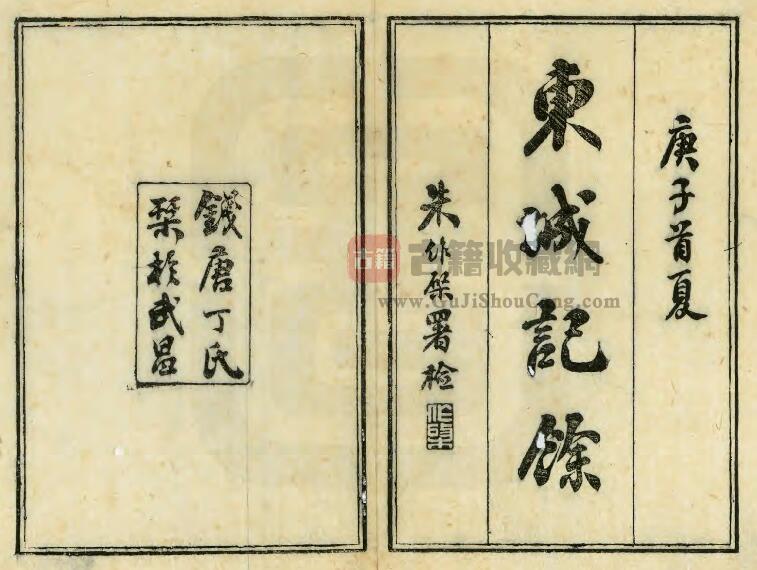 庚子首夏
東城記餘
朱作榮署檢
作榮
錢唐丁氏
栞於武昌
古籍
古籍收藏網
www.GuJiShouCang.com